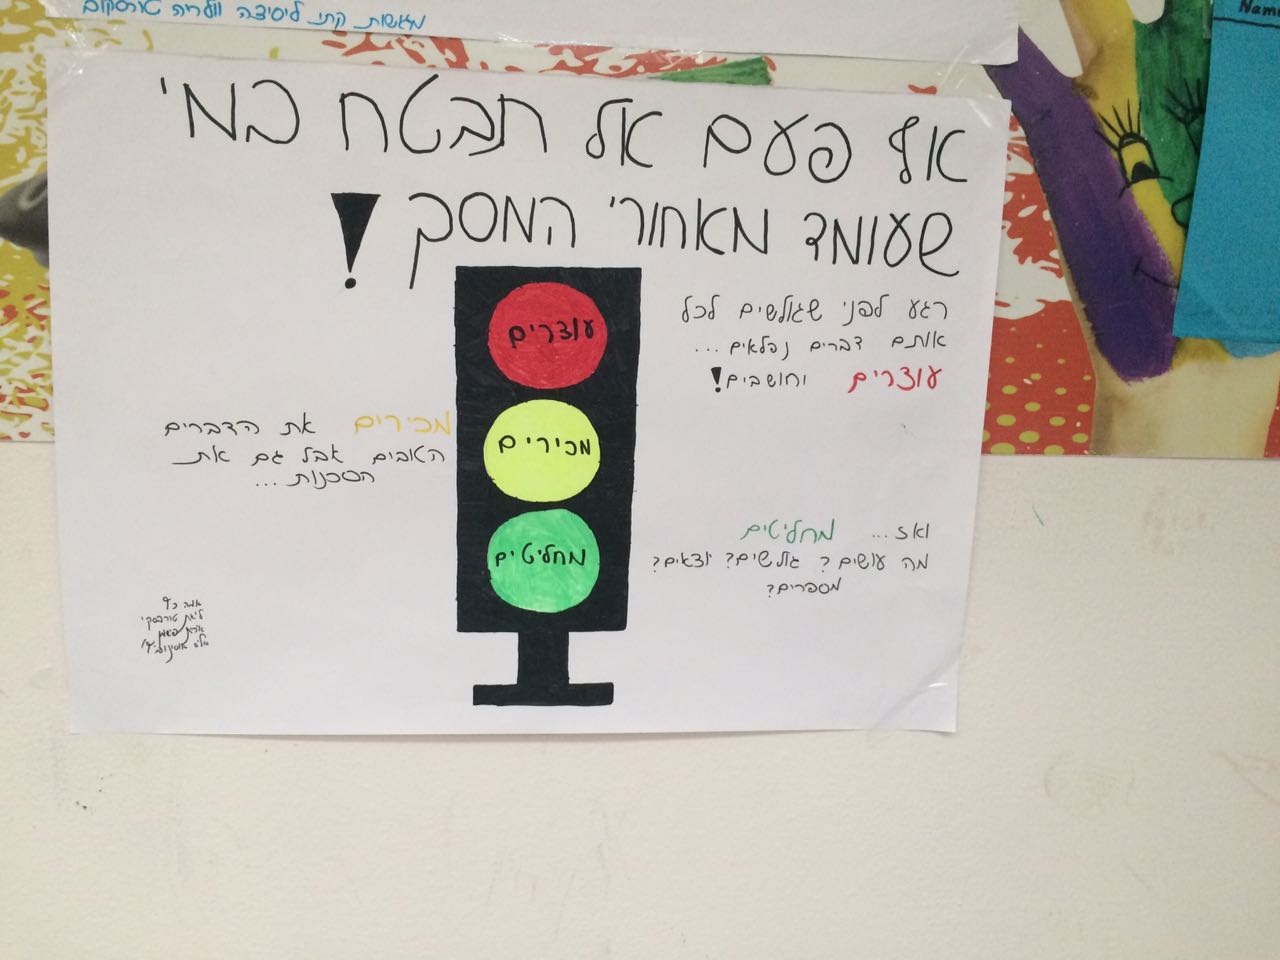 מגשות קתי ליסיצה וולריה
Name
אף פעם אל תבטח במי
שעומד מאחורי המסך!
רגע לפני שגולשים לכל
אותם דברים נפלאים...
עוצרים וחושבים!
עוצרים
מכירים
מחליטים
מכירים את הדברים
הטובים אבל גם את
הסכנות...
ואז... מחליטים
מה עושים? גולשים? יוצאים?
מספרים?
ליאת